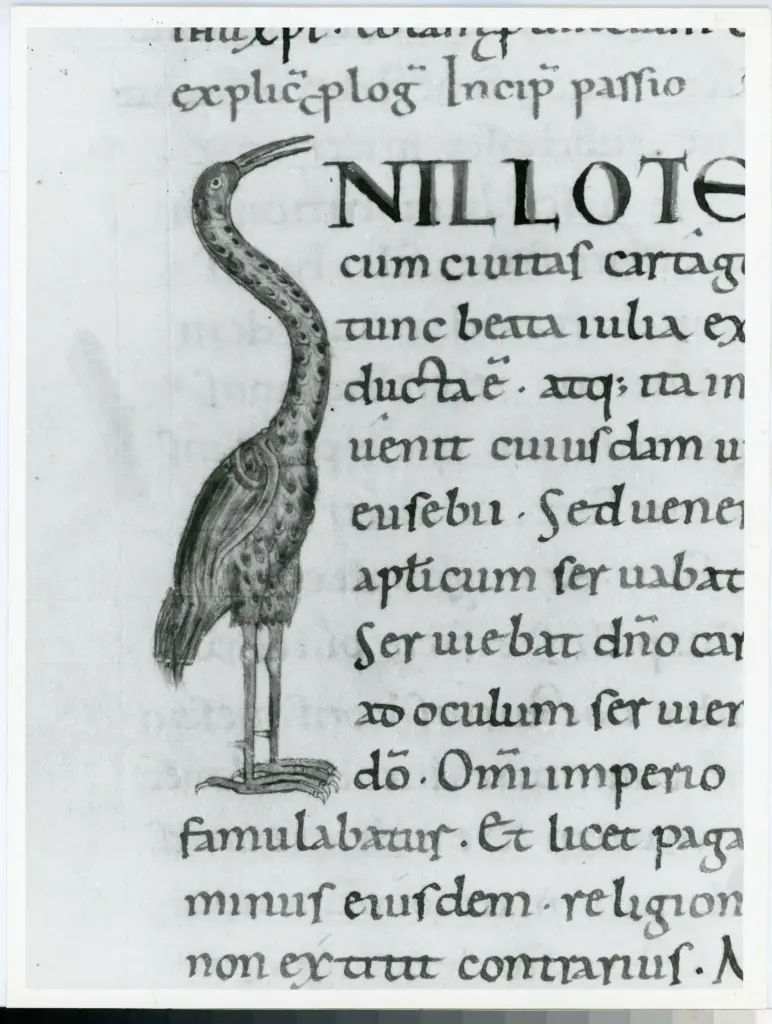 explic̄ p̱loḡ Incip̄ passio
NILLOTE
cum ciuitas cartag
tunc beata iulia ex
ducta ē · atq; ita in
uenit cuiusdam u
eusebii · Sed uene
aptīcum seruabat
Seruiebat dn̄o car
ad oculum seruier
dō · Om̄i imperio
famulabatur · Et licet paga
minus eiusdem · religion
non extitit contrarius ·